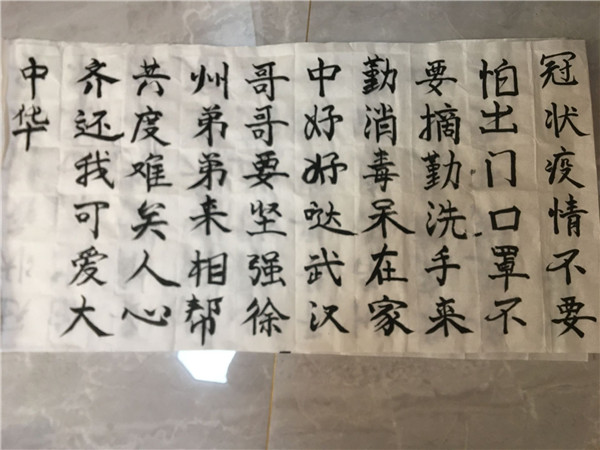 冠状疫情不要
怕出门口罩不
要摘勤洗手来
勤消毒呆在家
中好好哒武汉
哥哥要坚强徐
州弟弟来相帮
共度难矣人心
齐还我可爱大
中华